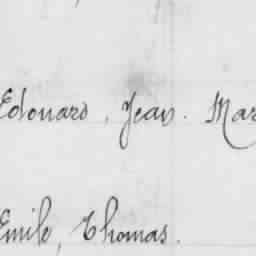 Edouard, Jean. Mar
Emile, Thomas.